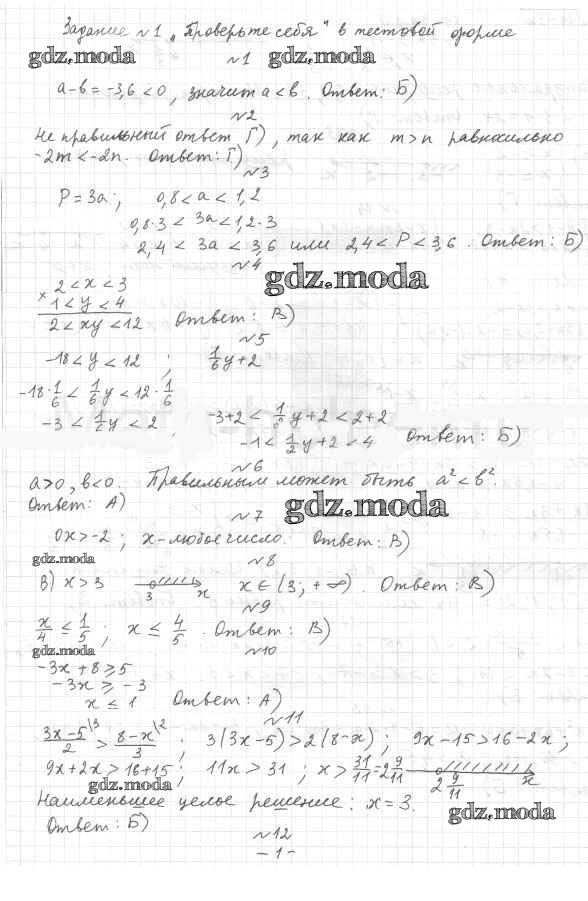 Задание №1 „Проверьте себя" в тестовой форме
gdz.moda №1 gdz.moda
a-b=-3,6<0, значит a<b. Ответ: Б)
№2
Не правильный ответ Г), так как m>n равносильно
-2m<-2n. Ответ: Г)
№3
P=3a; 0,8<a<1,2
0,8·3<3a<1,2·3
2,4<3a<3,6 или 2,4<P<3,6. Ответ: Б)
№4
gdz.moda
2<x<3
× 1<y<4
2<xy<12 Ответ: В)
№5
-18<y<12 ; 1/6 y+2
-18·1/6<1/6 y<12·1/6
-3<1/6 y<2 , -3+2<1/6 y+2<2+2
-1<1/2 y+2<4 Ответ: Б)
№6
a>0, b<0. Правильным может быть a²<b².
Ответ: А)
gdz.moda
№7
0x>-2; x-любое число. Ответ: В)
gdz.moda №8
В) x>3 3 x x∈(3;+∞). Ответ: В)
№9
x/4≤1/5; x≤4/5. Ответ: В)
gdz.moda №10
-3x+8≥5
-3x≥-3
x≤1 Ответ: А)
№11
3x-5/2 \3 > 8-x/3 \2 ; 3(3x-5)>2(8-x); 9x-15>16-2x;
9x+2x>16+15; 11x>31; x>31/11=2 9/11 2 9/11 x
gdz.moda
Наименьшее целое решение: x=3.
gdz.moda
Ответ: Б)
№12
-1-